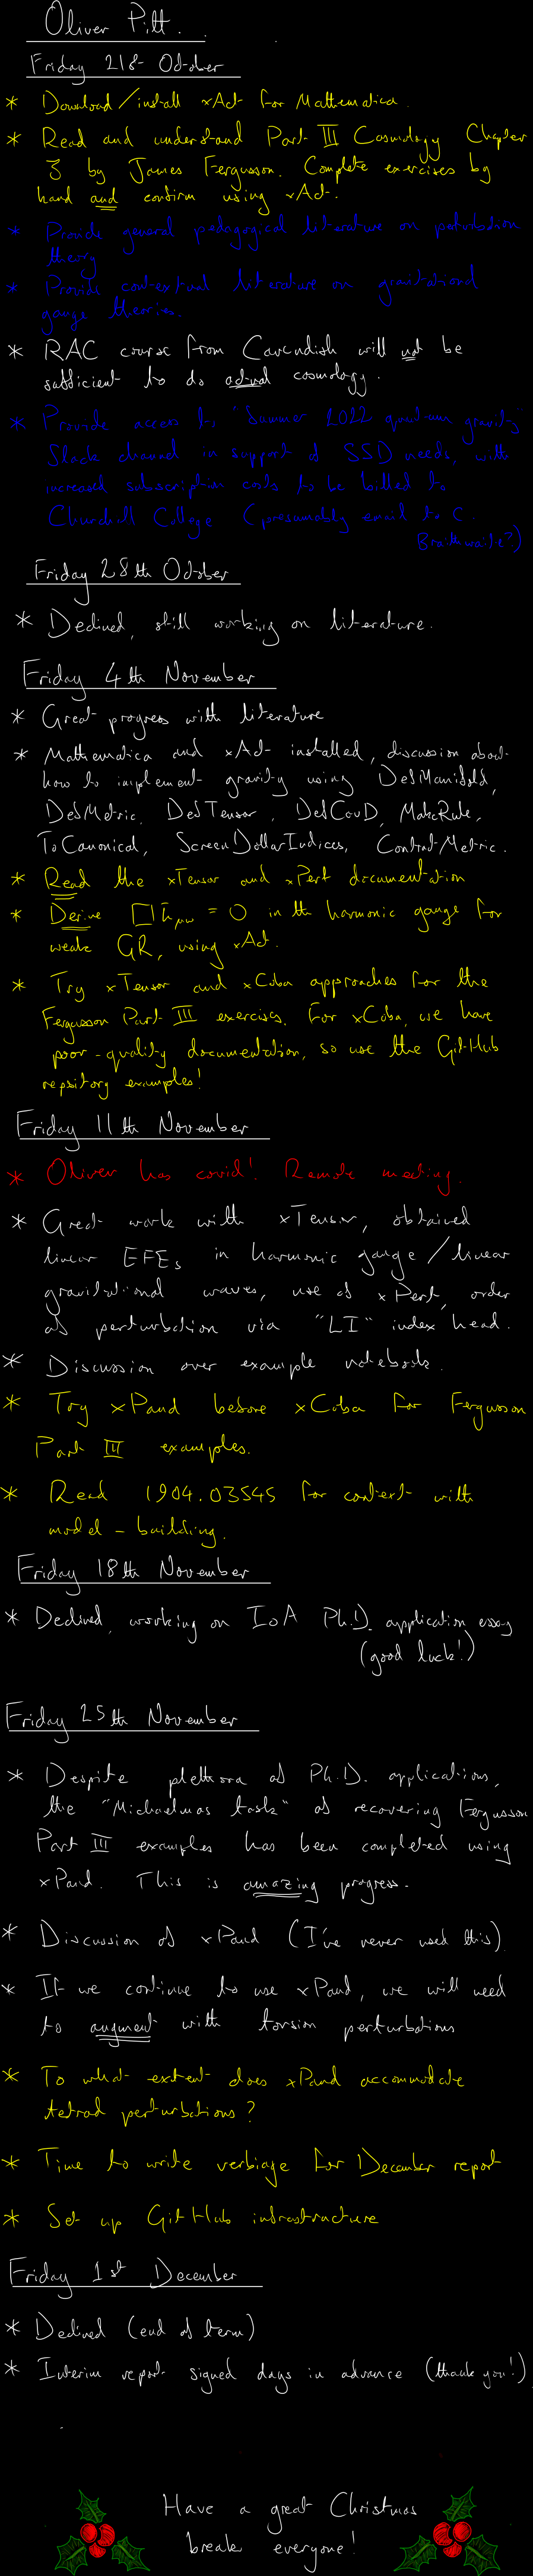 Oliver Pitt.
Friday 21st October
* Download/install xAct for Mathematica.
* Read and understand Part III Cosmology Chapter
3 by James Fergusson. Complete exercises by
hand and confirm using xAct.
* Provide general pedagogical literature on perturbation
theory
* Provide contextual literature on gravitational
gauge theories.
* RAC course from Cavendish will not be
sufficient to do actual cosmology.
* Provide access to "Summer 2022 quantum gravity"
Slack channel in support of SSD needs, with
increased subscription costs to be billed to
Churchill College (presumably email to C.
Braithwaite?)
Friday 28th October
* Declined, still working on literature.
Friday 4th November
* Great progress with literature
* Mathematica and xAct installed, discussion about
how to implement gravity using DefManifold,
DefMetric, DefTensor, DefCovD, MakeRule,
ToCanonical, ScreenDollarIndices, ContractMetric.
* Read the xTensor and xPert documentation
* Derive □h̄μν = 0 in the harmonic gauge for
weak GR, using xAct.
* Try xTensor and xCoba approaches for the
Fergusson Part III exercises. For xCoba, we have
poor-quality documentation, so use the GitHub
repository examples!
Friday 11th November
* Oliver has covid! Remote meeting.
* Great work with xTensor, obtained
linear EFEs in harmonic gauge/linear
gravitational waves, use of xPert, order
of perturbation via "LI" index head.
* Discussion over example notebooks.
* Try xPand before xCoba for Fergusson
Part III examples.
* Read 1904.03545 for context with
model-building.
Friday 18th November
* Declined, working on IoA Ph.D. application essay
(good luck!)
Friday 25th November
* Despite plethora of Ph.D. applications,
the "Michaelmas task" of recovering Fergusson
Part III examples has been completed using
xPand. This is amazing progress.
* Discussion of xPand (I've never used this).
* If we continue to use xPand, we will need
to augment with torsion perturbations
* To what extent does xPand accommodate
tetrad perturbations?
* Time to write verbiage for December report
* Set up GitHub infrastructure
Friday 1st December
* Declined (end of term)
* Interim report signed days in advance (thank you!)
Have a great Christmas
break everyone!